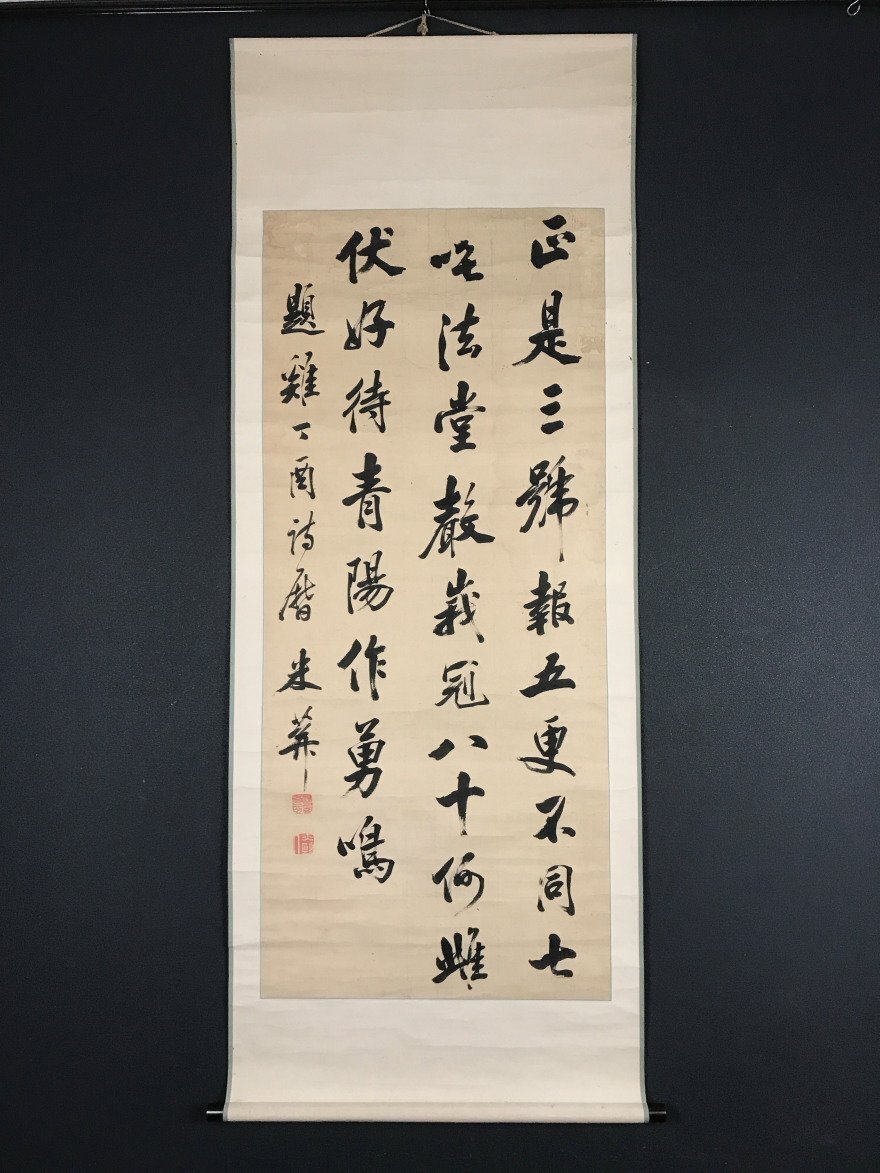 正是三號報五更不同七
咤法堂嚴峩冠八十何雌
伏好待青陽作勇鳴
題雞丁酉詩曆 米葊